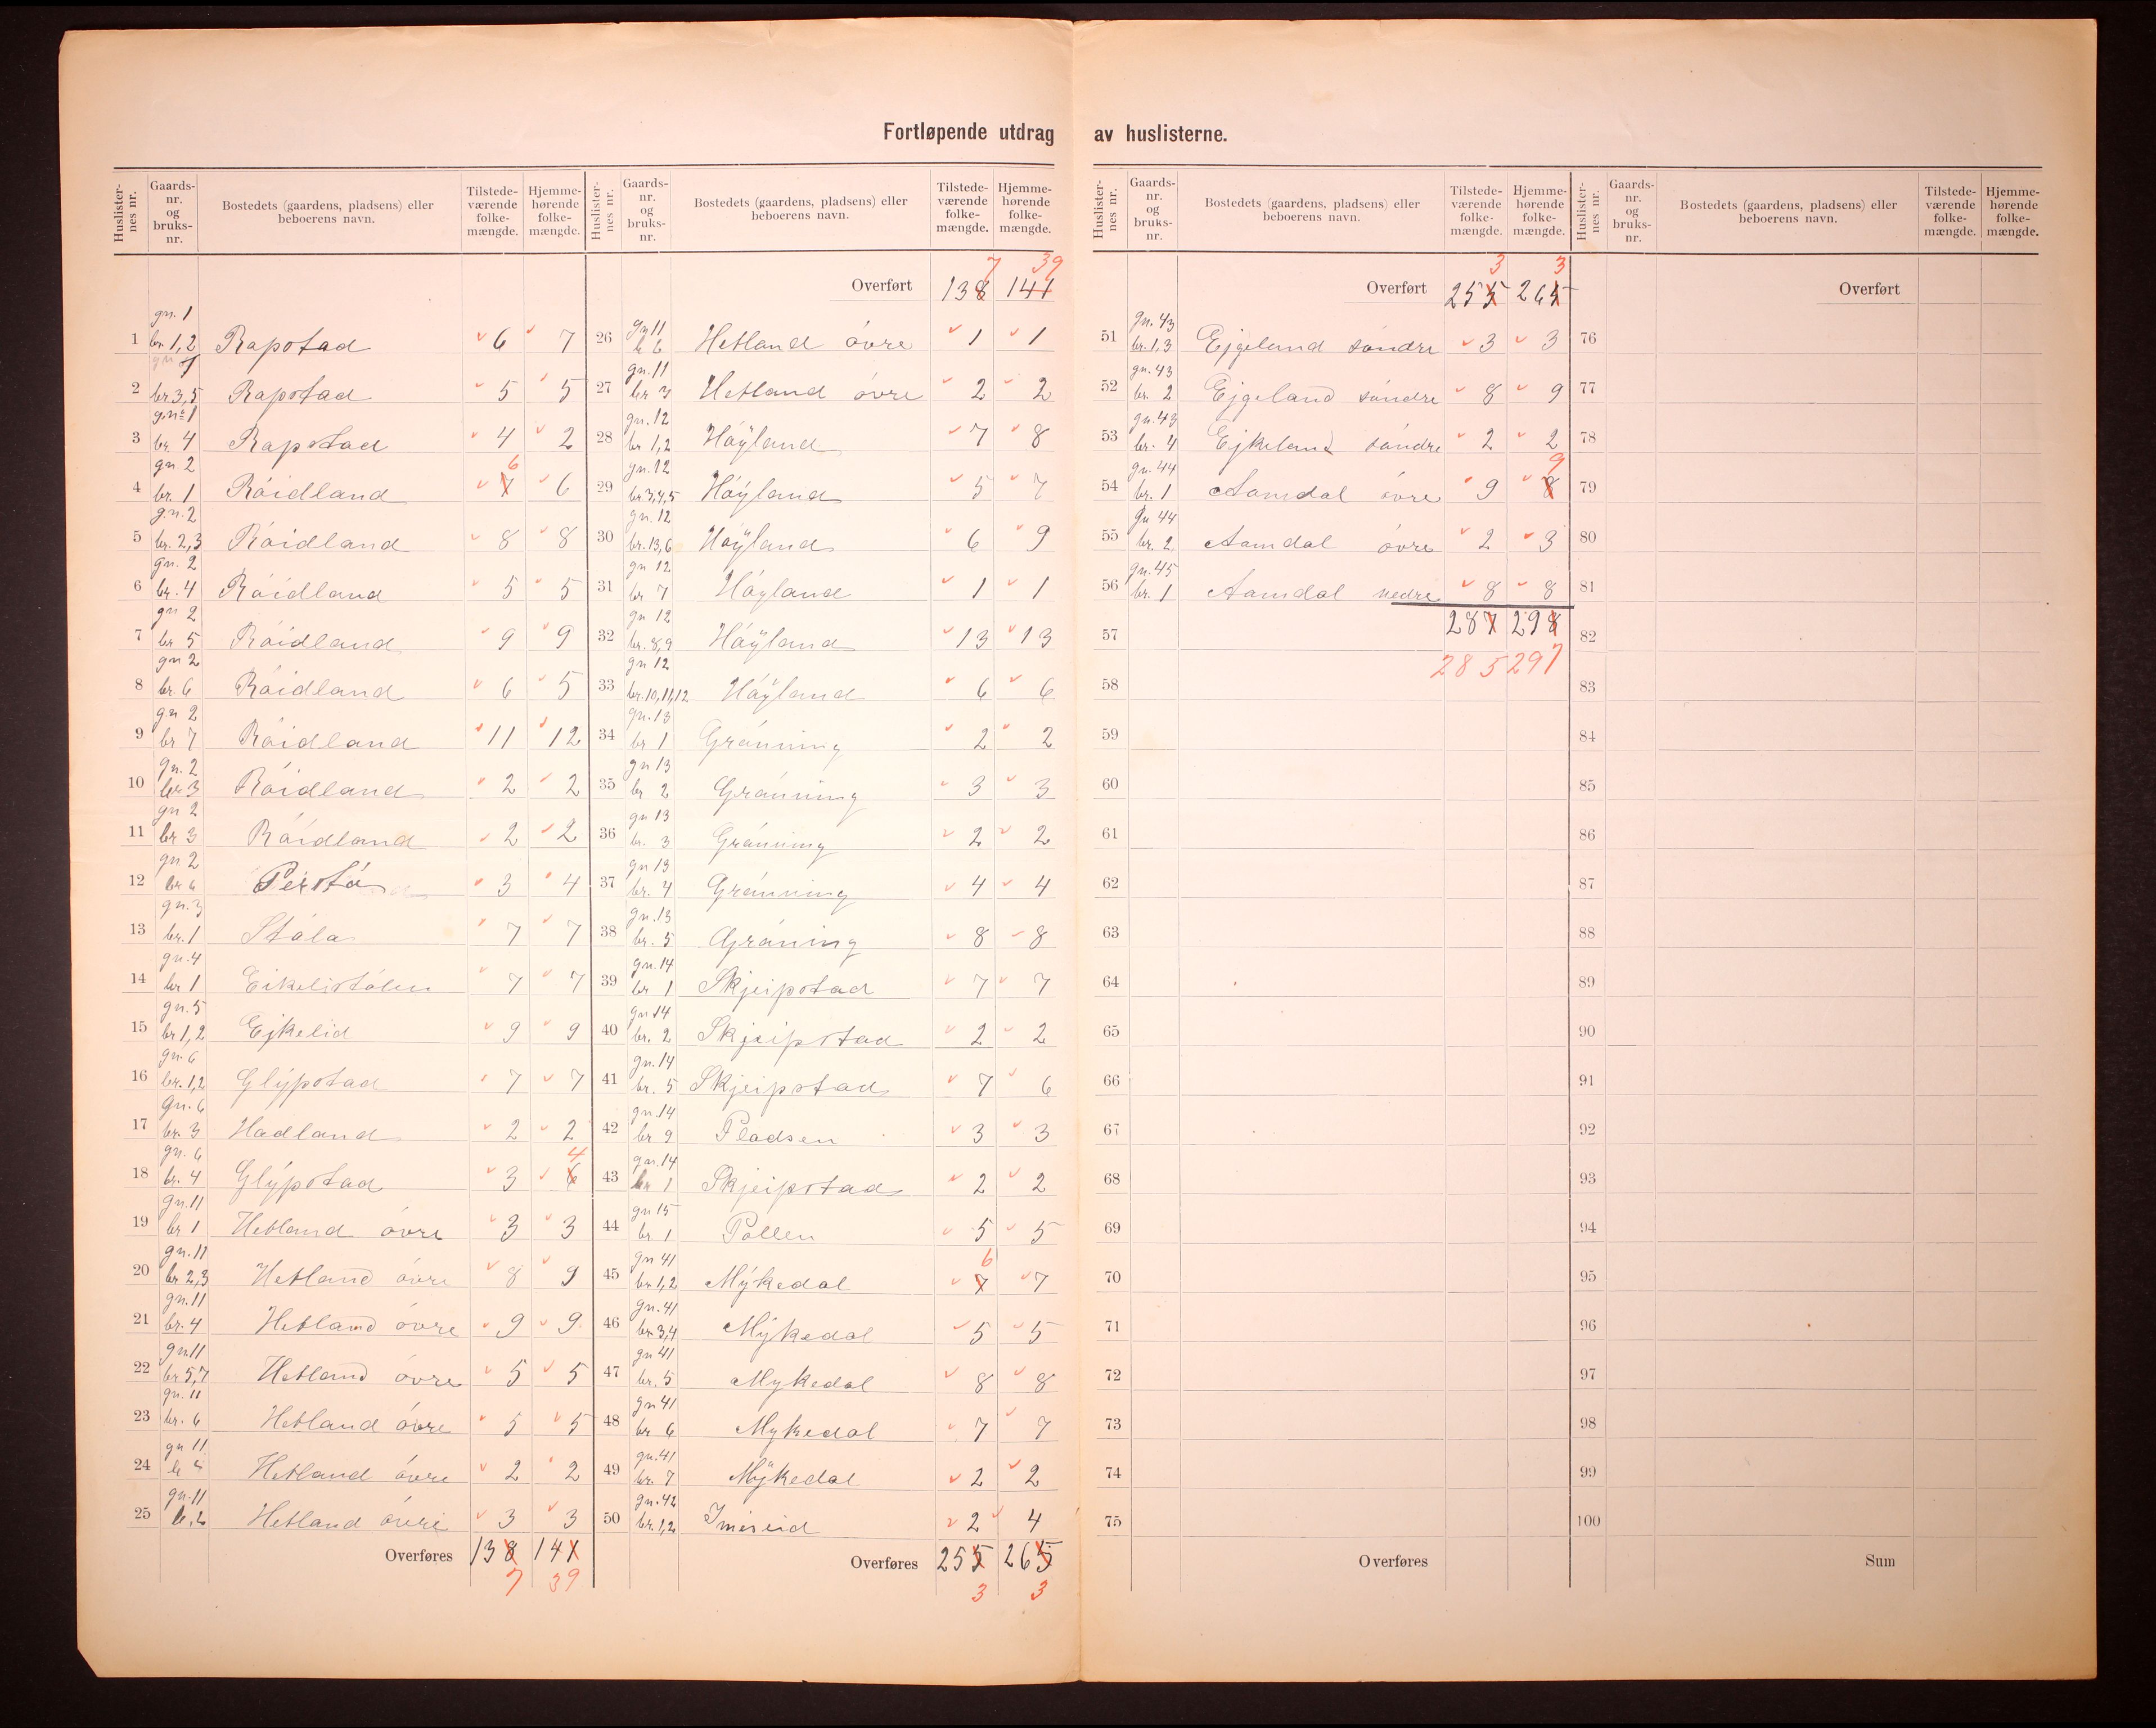 Fortløpende utdrag av huslisterne.
Huslister-nes nr. | Gaards-nr. og bruks-nr. | Bostedets (gaardens, pladsens) eller beboerens navn. | Tilstede-værende folke-mængde. | Hjemme-hørende folke-mængde.
1 gn. 1 br. 1,2 Rapstad 6 7
2 gn 1 br. 3,5 Rapstad 5 5
3 gn. 1 br. 4 Rapstad 4 2
4 gn. 2 br. 1 Róidland 7 6 6
5 g.n. 2 br. 2,3 Róidland 8 8
6 gn. 2 br. 4 Róidland 5 5
7 gn 2 br 5 Róidland 9 9
8 gn 2 br. 6 Róidland 6 5
9 gn 2 br 7 Róidland 11 12
10 gn. 2 br 3 Róidland 2 2
11 gn 2 br 3 Róidland 2 2
12 gn. 2 br 6 Perstó 3 4
13 gn. 3 br. 1 Stóla 7 7
14 gn. 4 br 1 Eikelistólen 7 7
15 gn. 5 br 1,2 Ejkelid 9 9
16 gn. 6 br. 1,2 Glýpstad 7 7
17 gn. 6 br. 3 Hadland 2 2
18 gn. 6 br. 4 Glýpstad 3 6 4
19 gn. 11 br 1 Hetland óvre 3 3
20 gn. 11 br 2,3 Hetland óvre 8 9
21 gn. 11 br. 4 Hetland óvre 9 9
22 gn. 11 br 5,7 Hetland óvre 5 5
23 gn. 11 br. 6 Hetland óvre 5 5
24 gn 11 Hetland óvre 2 2
25 gn. 11 Hetland óvre 3 3
Overføres 138 141
7 39
Huslister-nes nr. | Gaards-nr. og bruks-nr. | Bostedets (gaardens, pladsens) eller beboerens navn. | Tilstede-værende folke-mængde. | Hjemme-hørende folke-mængde.
7 39
Overført 138 141
26 gn 11 b 6 Hetland óvre 1 1
27 gn. 11 br 3 Hetland óvre 2 2
28 gn. 12 br 1,2 Hóÿland 7 8
29 gn. 12 br 3,4,5 Hóÿland 5 7
30 gn. 12 br. 13,6 Hóÿland 6 9
31 gn 12 br 7 Hóyland 1 1
32 gn 12 br. 8,9 Hóÿland 13 13
33 gn 12 br. 10,11,12 Hóÿland 6 6
34 gn. 13 br 1 Grónning 2 2
35 gn 13 br 2 Grónning 3 3
36 gn 13 br. 3 Grónning 2 2
37 gn 13 br. 4 Grónning 4 4
38 gn. 13 br. 5 Gróning 8 8
39 gn. 14 br 1 Skjeipstad 7 7
40 gn 14 br. 2 Skjeipstad 2 2
41 gn. 14 br. 5 Skjeipstad 7 6
42 gn. 14 br 9 Pladsen 3 3
43 gn. 14 br 1 Skjeipstad 2 2
44 gn 15 br. 1 Pollen 5 5
45 gn 41 br. 1,2 Mýkedal 7 6 7
46 gn. 41 br. 3,4 Mýkedal 5 5
47 gn 41 br. 5 Mykedal 8 8
48 gn 41 br 6 Mykedal 7 7
49 gn. 41 br. 7 Mýkedal 2 2
50 gn. 42 br. 1,2 Imeseid 2 4
Overføres 255 265
3 3
Huslister-nes nr. | Gaards-nr. og bruks-nr. | Bostedets (gaardens, pladsens) eller beboerens navn. | Tilstede-værende folke-mængde. | Hjemme-hørende folke-mængde.
3 3
Overført 255 265
51 gn. 43 br. 1,3 Ejgeland sóndre 3 3
52 gn. 43 br. 2 Ejgeland sóndre 8 9
53 gn. 43 br. 4 Ejkeland sóndre 2 2
54 gn. 44 br. 1 Aamdal óvre 9 8 9
55 gn 44 br. 2 Aamdal óvre 2 3
56 gn. 45 br. 1 Aamdal nedre 8 8
57 287 298
285 297
58
59
60
61
62
63
64
65
66
67
68
69
70
71
72
73
74
75
Overføres
Huslister-nes nr. | Gaards-nr. og bruks-nr. | Bostedets (gaardens, pladsens) eller beboerens navn. | Tilstede-værende folke-mængde. | Hjemme-hørende folke-mængde.
Overført
76
77
78
79
80
81
82
83
84
85
86
87
88
89
90
91
92
93
94
95
96
97
98
99
100
Sum